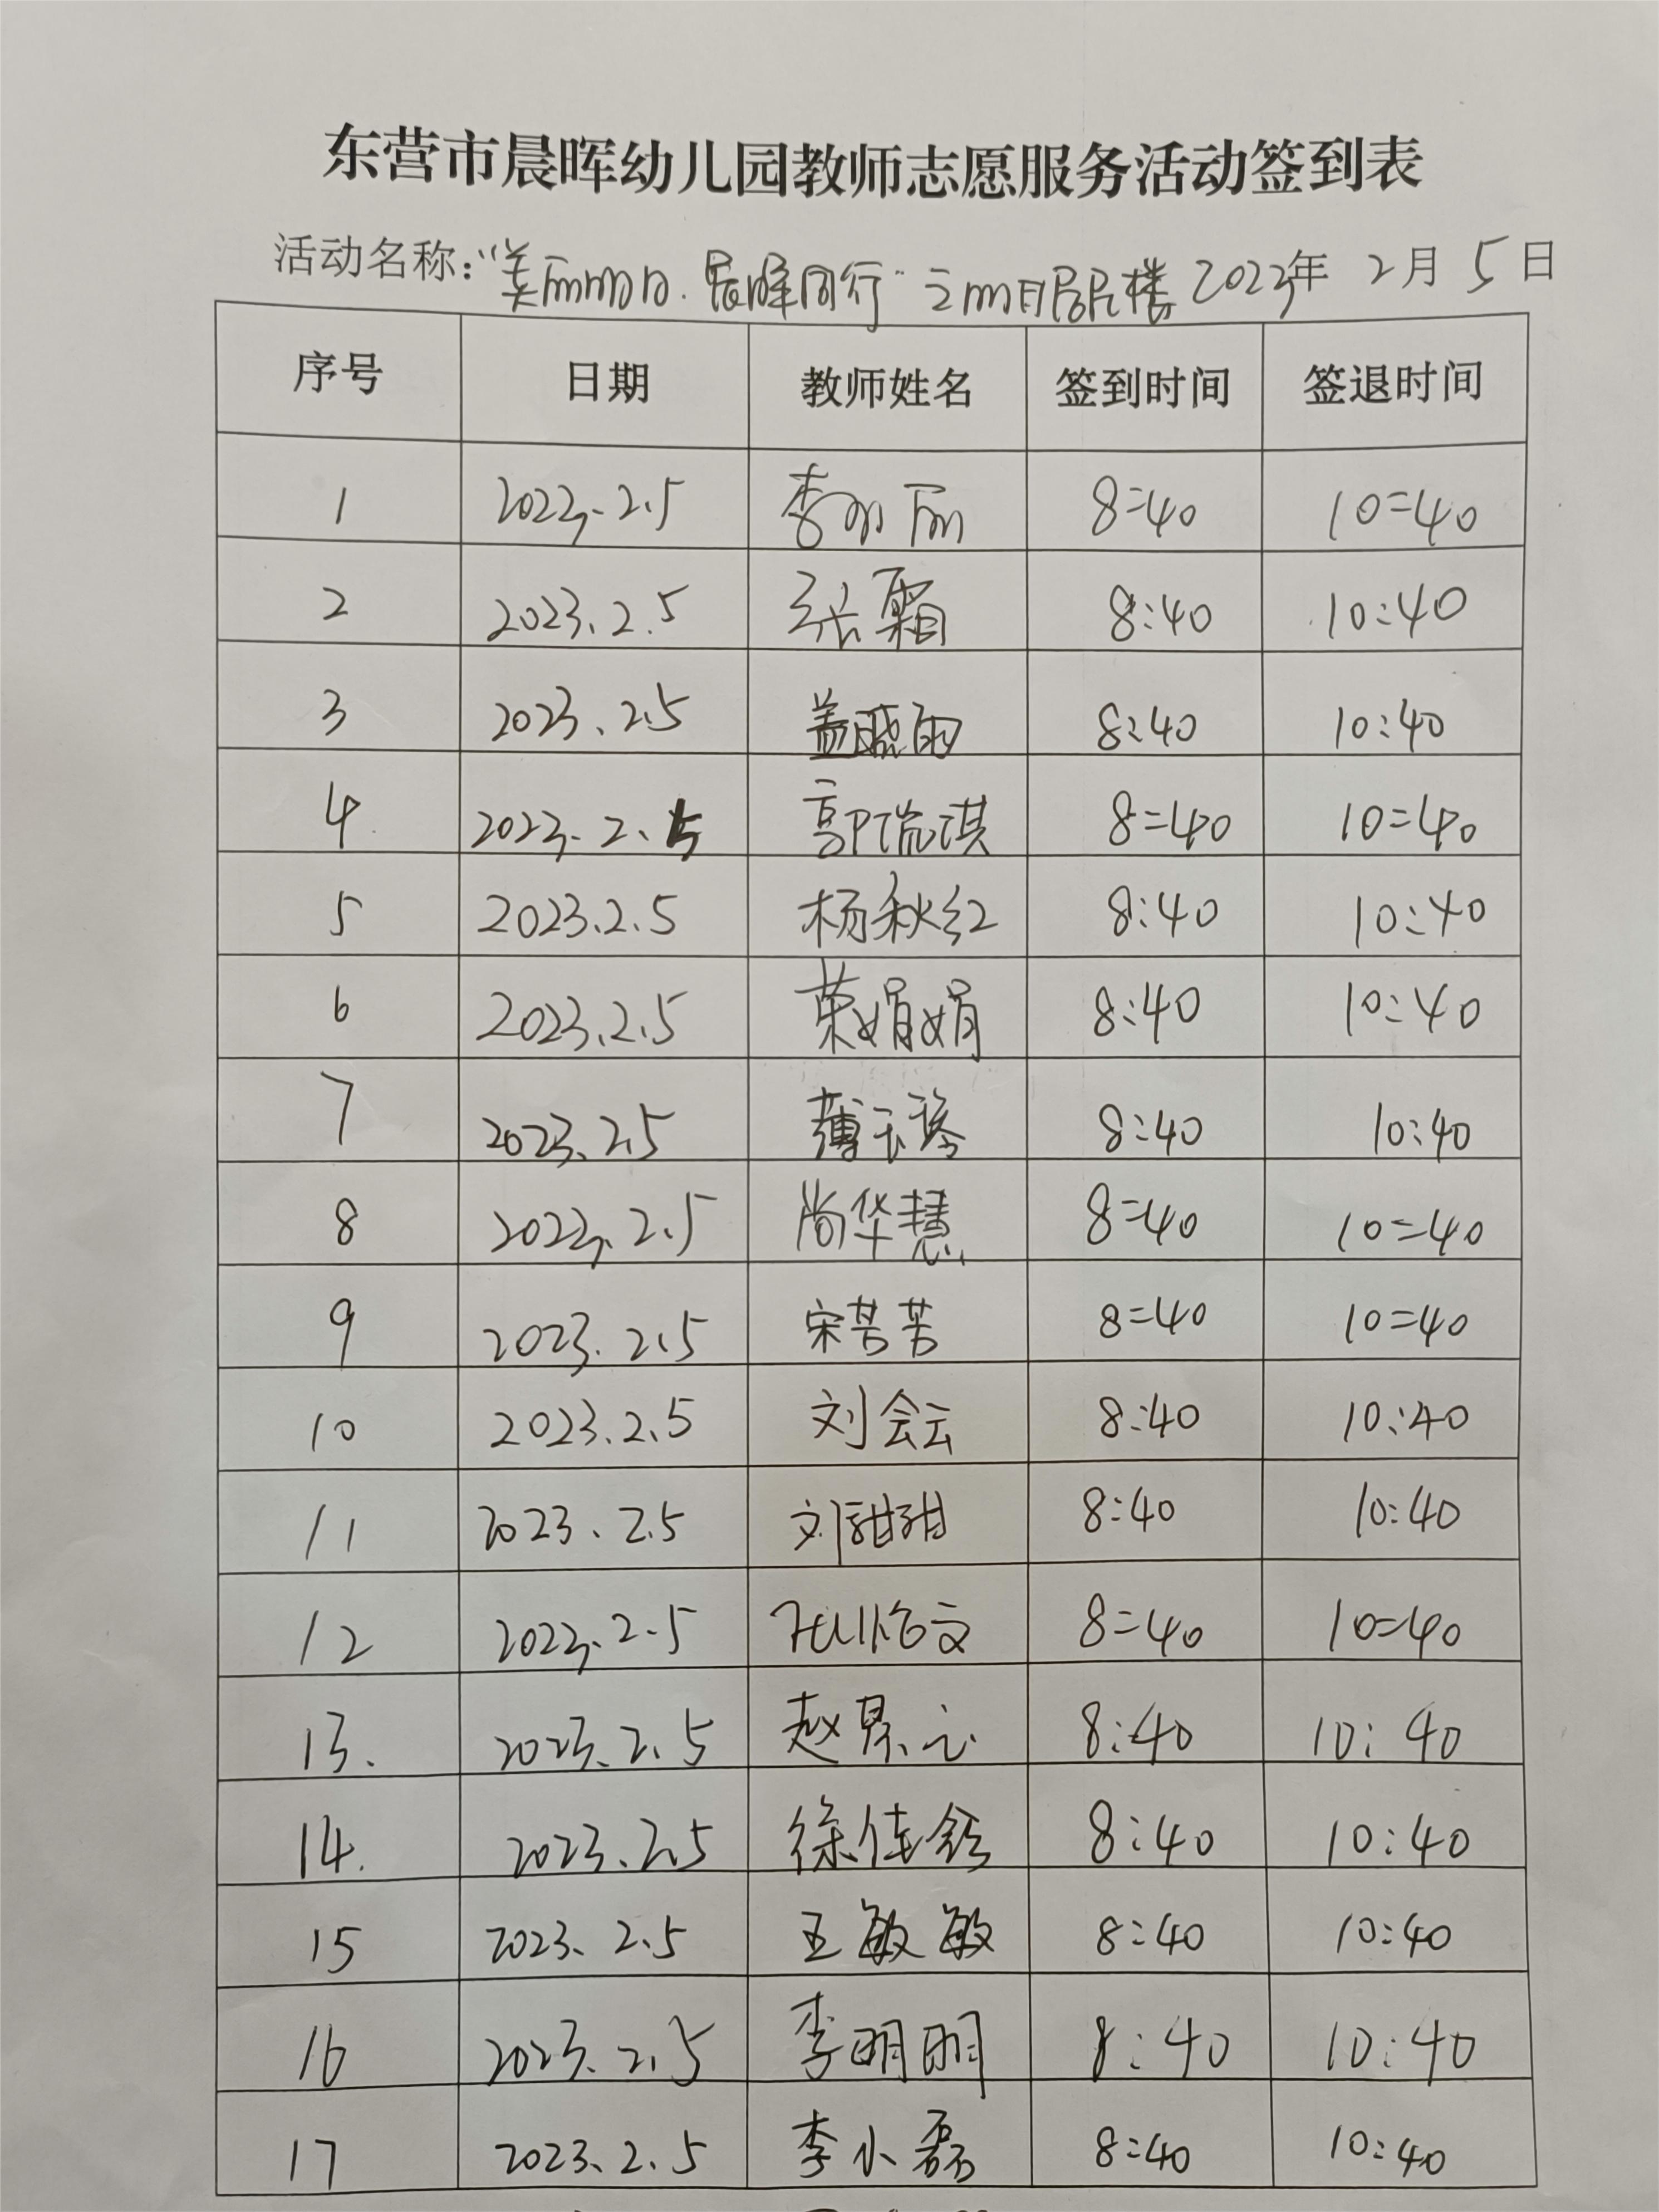 东营市晨晖幼儿园教师志愿服务活动签到表
活动名称：“美丽 晨晖同行” 居民楼 2023年 2月 5日
序号 日期 教师姓名 签到时间 签退时间
1 2023.2.5 李 丽 8:40 10:40
2 2023.2.5 张霜 8:40 10:40
3 2023.2.5 盖晓雨 8:40 10:40
4 2023.2.5 郭瑞淇 8:40 10:40
5 2023.2.5 杨秋红 8:40 10:40
6 2023.2.5 荣娟娟 8:40 10:40
7 2023.2.5 薄玉琴 8:40 10:40
8 2023.2.5 尚华慧 8:40 10:40
9 2023.2.5 宋芳芳 8:40 10:40
10 2023.2.5 刘会云 8:40 10:40
11 2023.2.5 刘甜甜 8:40 10:40
12 2023.2.5 文 8:40 10:40
13. 2023.2.5 赵 8:40 10:40
14. 2023.2.5 徐佳 8:40 10:40
15 2023.2.5 王敏敏 8:40 10:40
16 2023.2.5 李明明 8:40 10:40
17 2023.2.5 李小磊 8:40 10:40